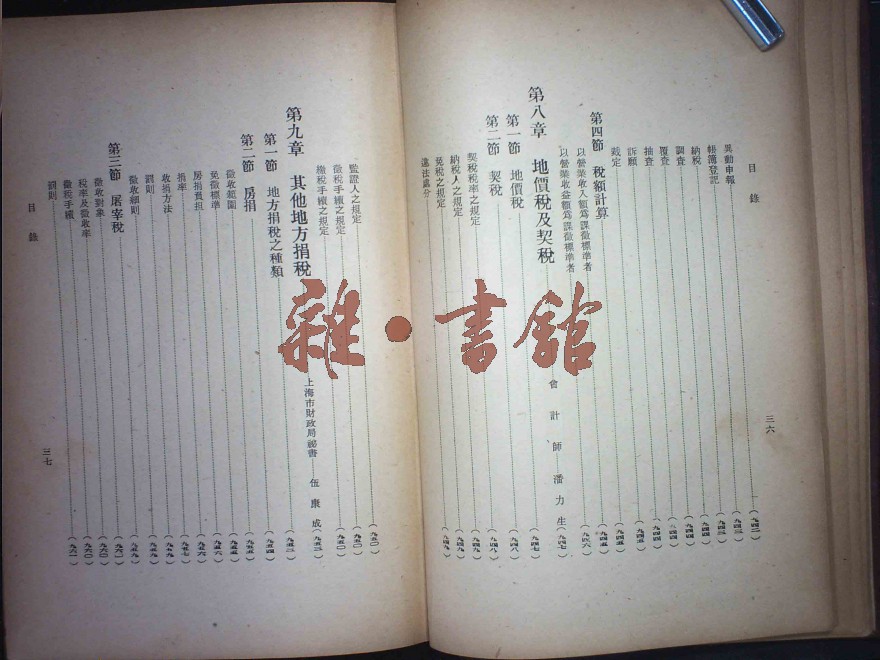 目錄
異動申報(九四三)
帳簿登記(九四三)
納稅(九四四)
調查(九四四)
覆查(九四四)
抽查(九四四)
訴願(九四五)
裁定(九四五)
第四節 稅額計算(九四五)
以營業收入額爲課徵標準者(九四六)
以營業收益額爲課徵標準者(九四七)
第八章 地價稅及契稅 會計師潘力生(九四七)
第一節 地價稅(九四八)
第二節 契稅(九四八)
契稅稅率之規定(九四九)
納稅人之規定(九四九)
免稅之規定(九四九)
違法處分(九四九)
三六
監證人之規定(九五〇)
徵稅手續之規定(九五〇)
繳稅手續之規定(九五〇)
第九章 其他地方捐稅 上海市財政局祕書 伍康成(九五三)
第一節 地方捐稅之種類(九五四)
第二節 房捐(九五四)
徵收範圍(九五五)
免徵標準(九五六)
房捐負担(九五六)
捐率(九五七)
收捐方法(九五九)
罰則(九五九)
徵收細則(九五九)
第三節 屠宰稅(九六〇)
徵收對象(九六〇)
稅率及徵收率(九六〇)
徵稅手續(九六〇)
罰則(九六一)
目錄
三七
雜·書館